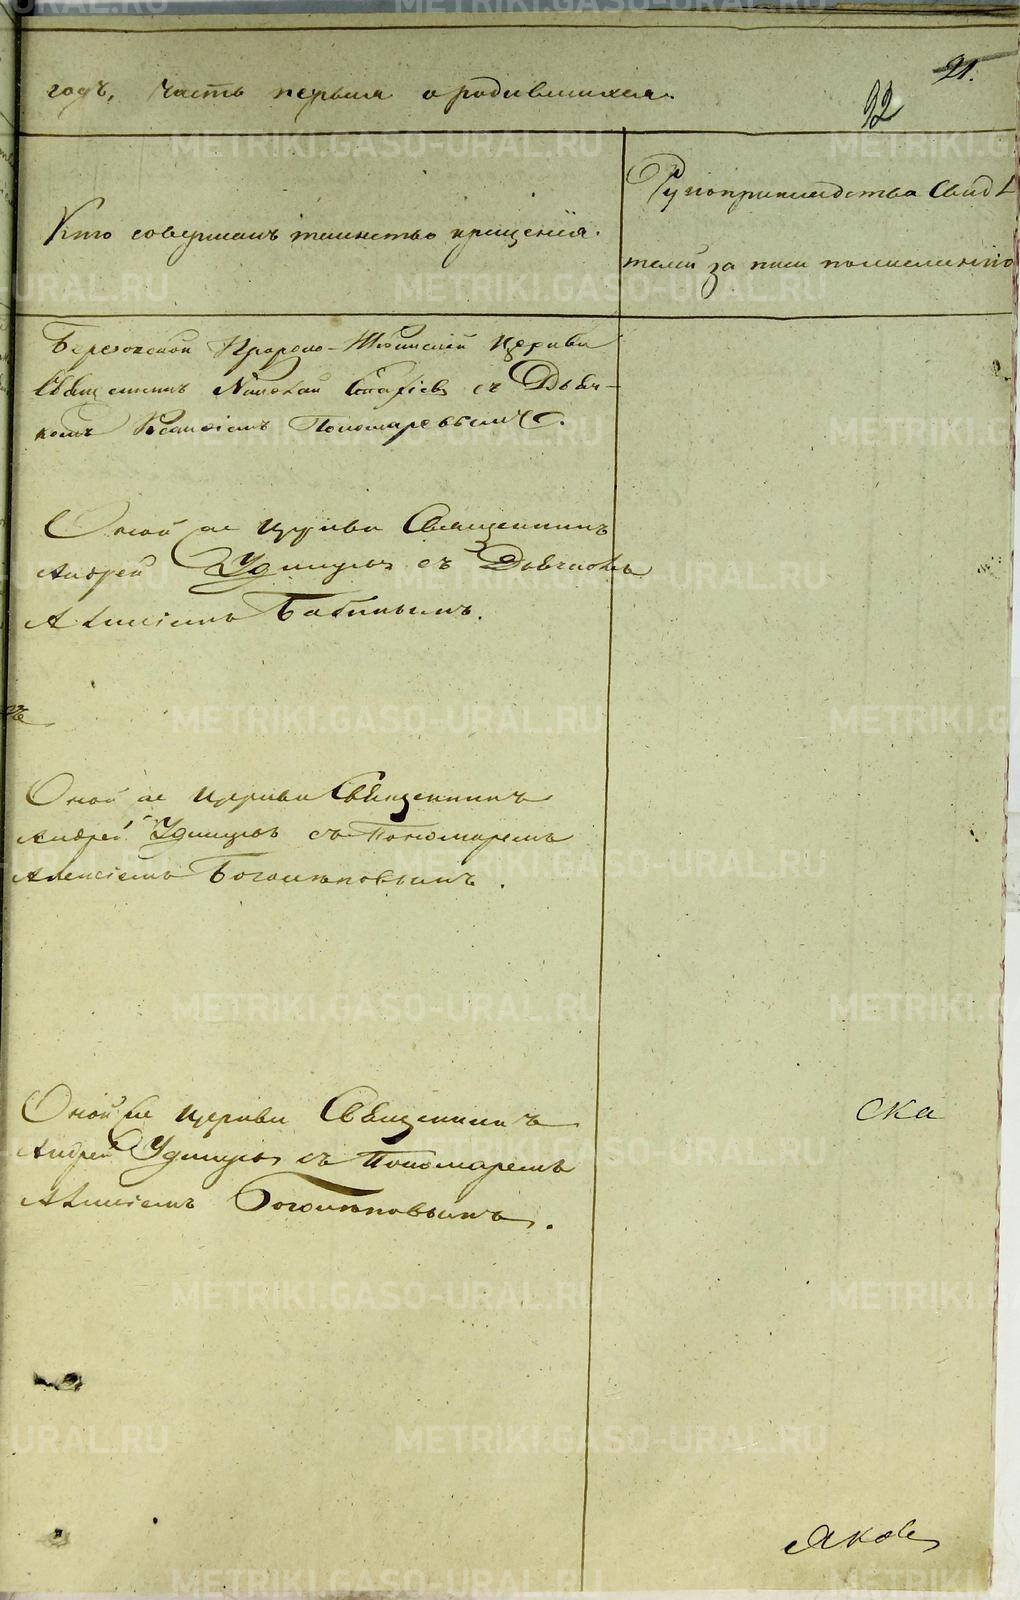 21.
92
годъ, часть первая о родившихся.
Кто совершалъ таинство крещенія.
Рукоприкладства свидѣ
телей за писи пожеланію
Церкви
Священникъ Николай съ Дьяч-
комъ Пономаревымъ.
Оной же Церкви Священникъ
Андрей Удинцовъ съ Дьячкомъ
Алексіемъ Бабинымъ.
Оной же Церкви Священникъ
Андрей Удинцовъ съ Пономаремъ
Алексіемъ Боголеповымъ.
Оной же Церкви Священникъ
Андрей Удинцовъ съ Пономаремъ
Алексіемъ Боголеповымъ.
ска
Яков
METRIKI.GASO-URAL.RU